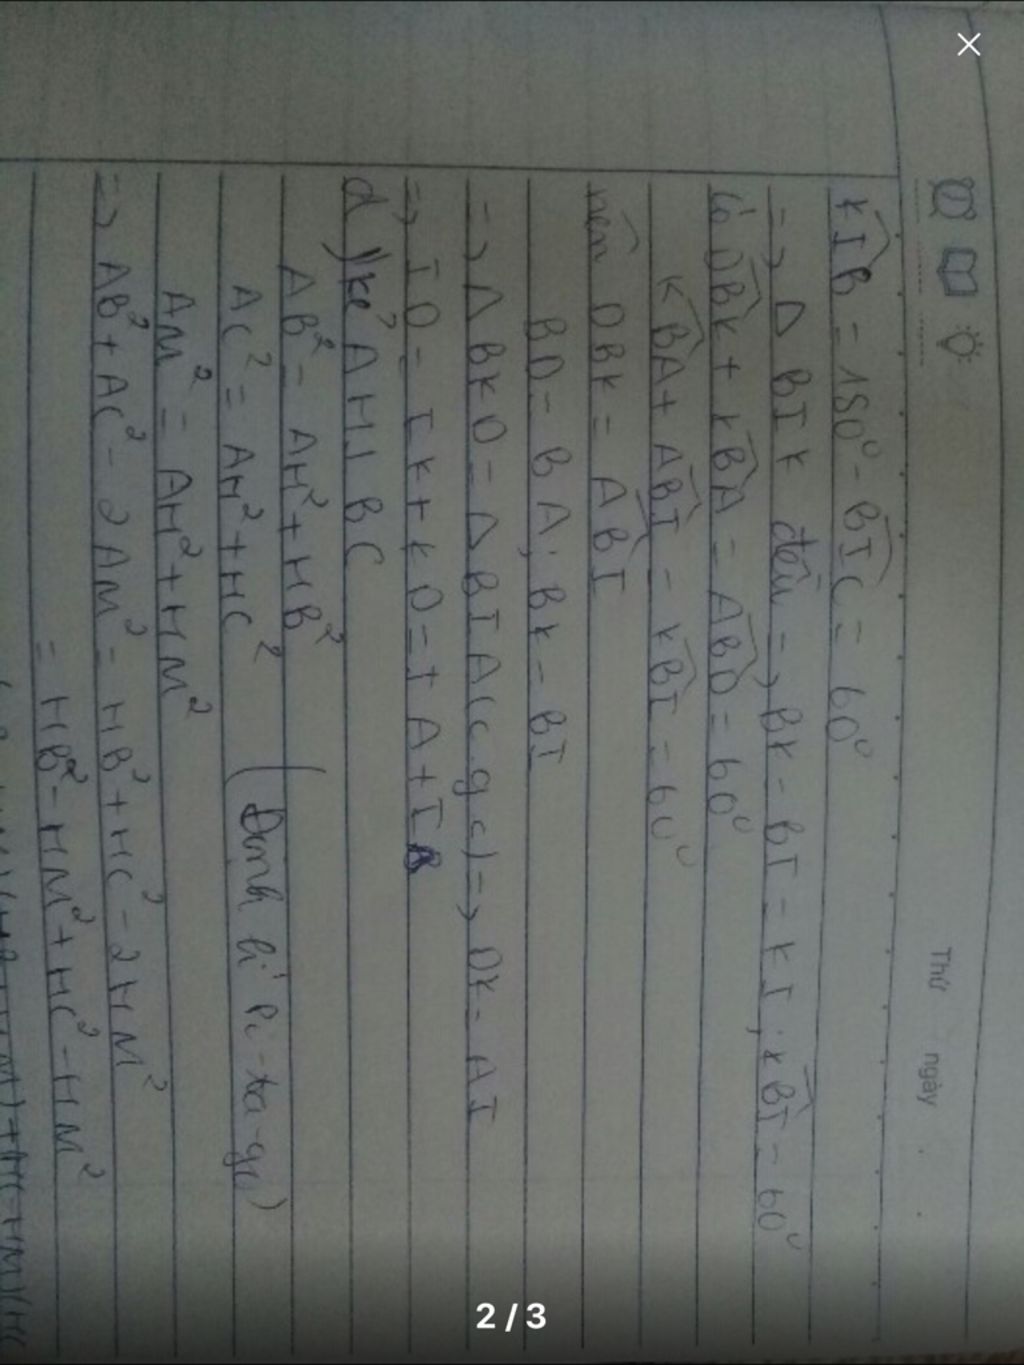 Thứ ngày
KIB = 180° - BIC = 60°
=> Δ BIK đều => BK = BI = KI ; KBI = 60°
Có DBK + KBA = ABD = 60°
KBA + ABI = KBI = 60°
nên DBK = ABI
BD = BA ; BK = BI
=> Δ BKD = Δ BIA (c g c) => DK = AI
=> ID = IK + KD = IA + IB
d) kẻ AH ⊥ BC
AB² = AH² + HB²
AC² = AH² + HC² (Định lí Pi-ta-go)
AM² = AH² + HM²
=> AB² + AC² - 2AM² = HB² + HC² - 2HM²
= HB² - HM² + HC² - HM²
2 / 3